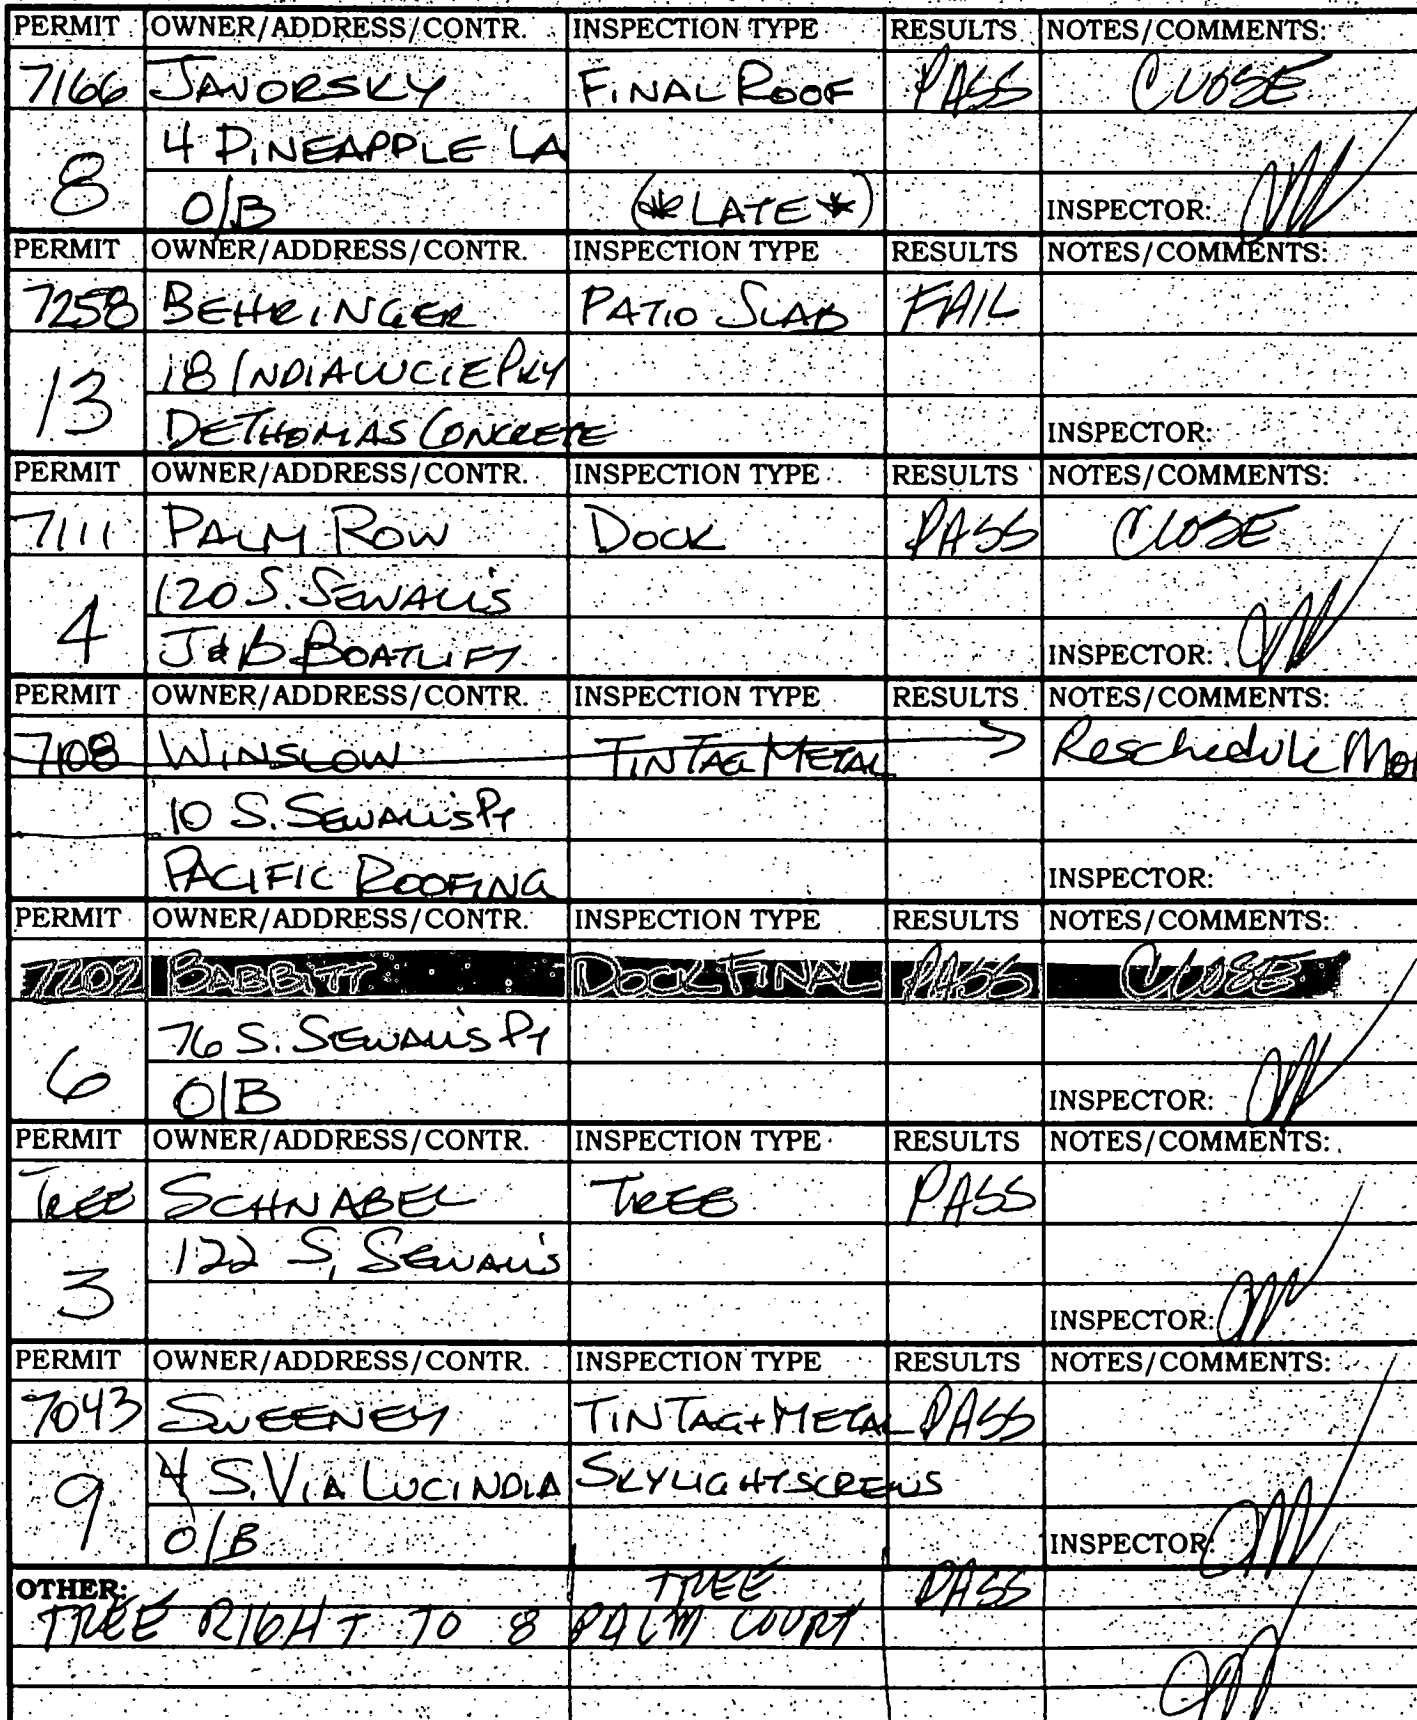 PERMIT OWNER/ADDRESS/CONTR. INSPECTION TYPE RESULTS NOTES/COMMENTS:
7166 JAVORSKY FINAL ROOF PASS CLOSE
4 PINEAPPLE LA
8 O/B (*LATE*) INSPECTOR:
PERMIT OWNER/ADDRESS/CONTR. INSPECTION TYPE RESULTS NOTES/COMMENTS:
7258 BEHRINGER PATIO SLAB FAIL
18 INDIALUCIE PKY
13 DETHOMAS CONCRETE INSPECTOR:
PERMIT OWNER/ADDRESS/CONTR. INSPECTION TYPE RESULTS NOTES/COMMENTS:
7111 PALM ROW DOCK PASS CLOSE
120 S. SEWALL'S
4 J&B BOATLIFT INSPECTOR:
PERMIT OWNER/ADDRESS/CONTR. INSPECTION TYPE RESULTS NOTES/COMMENTS:
7108 WINSLOW TINTAG METAL Reschedule Mon
10 S. SEWALL'S PT
PACIFIC ROOFING INSPECTOR:
PERMIT OWNER/ADDRESS/CONTR. INSPECTION TYPE RESULTS NOTES/COMMENTS:
7202 BABBITT DOCK FINAL PASS CLOSE
76 S. SEWALL'S PT
6 O/B INSPECTOR:
PERMIT OWNER/ADDRESS/CONTR. INSPECTION TYPE RESULTS NOTES/COMMENTS:
TREE SCHNABEL TREE PASS
122 S. SEWALL'S
3 INSPECTOR:
PERMIT OWNER/ADDRESS/CONTR. INSPECTION TYPE RESULTS NOTES/COMMENTS:
7043 SWEENEY TINTAG+METAL PASS
4 S. VIA LUCINDIA SKYLIGHT SCREWS
9 O/B INSPECTOR:
OTHER: TREE PASS
TREE RIGHT TO 8 PALM COURT